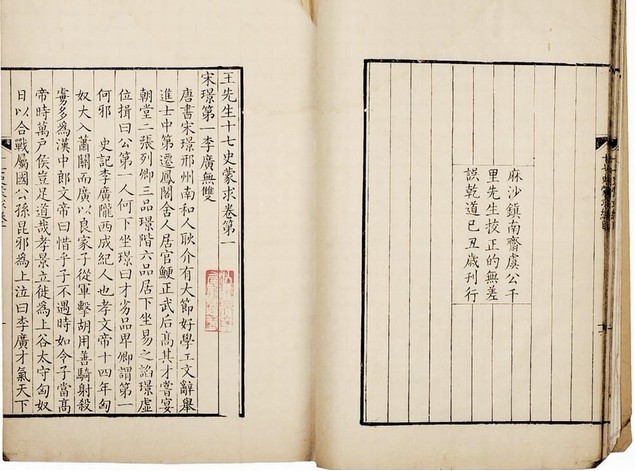 麻沙鎮南齋虞公千
里先生校正的無差
誤乾道己丑歲刊行
王先生十七史蒙求卷第一
宋璟第一李廣無雙
唐書宋璟邢州南和人耿介有大節好學工文辭舉
進士中第遷鳳閣舍人居官鯁正武后高其才嘗宴
朝堂二張列卿三品璟階六品居下坐易之諂璟虛
位揖曰公第一人何下坐璟曰才劣品卑卿謂第一
何邪　史記李廣隴西成紀人也孝文帝十四年匈
奴大入蕭關而廣以良家子從軍擊胡用善騎射殺
虜多爲漢中郎文帝曰惜乎子不遇時如令子當高
帝時萬户侯豈足道哉孝景立徙爲上谷太守匈奴
日以合戰屬國公孫昆邪爲上泣曰李廣才氣天下